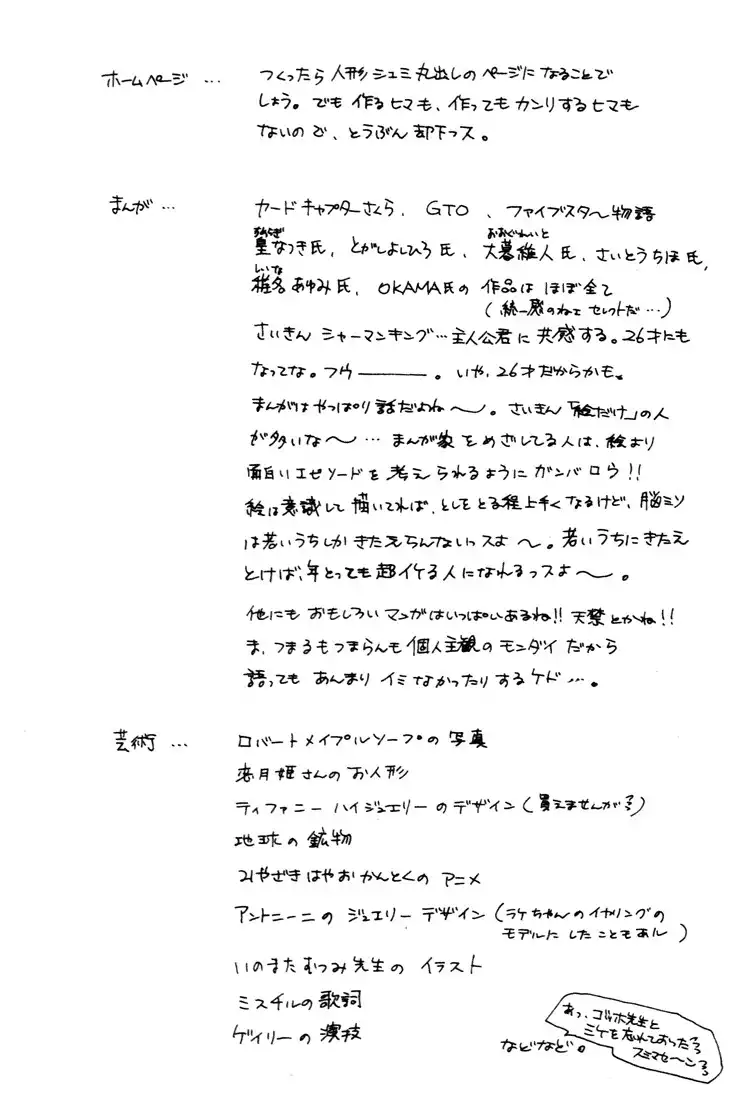 ホームページ … つくったら 人形シュミ丸出しの ページに なることで
しょう。でも 作るヒマも、作っても カンリするヒマも
ないので、とうぶん 却下っス。
まんが … カードキャプターさくら、GTO、ファイブスター物語
すめらぎ おおぐれいと
皇なつき氏、とがしよしひろ氏、大暮維人氏、さいとうちほ氏、
しいな
椎名あゆみ氏、OKAMA氏の 作品は ほぼ全て
(統一感のねェ セレクトだ…)
さいきん シャーマンキング…主人公君に 共感する。26才にも
なってな。フウ――――。いや、26才だからかも。
まんがは やっぱり 話だよね〜。さいきん「絵だけ」の人
が多いな〜… まんが家を めざしてる人は、絵より
面白いエピソードを 考えられるように ガンバロウ!!
絵は意識して 描いてれば、としをとる程上手くなるけど、脳ミソ
は若いうちしか きたえらんないっスよ〜。若いうちにきたえ
とけば、年とっても 超イケる人に なれるっスよ〜。
他にも おもしろい マンガは いっぱいあるね!! 天禁とかね!!
ま、つまるもつまらんも 個人主観の モンダイ だから
語っても あんまり イミなかったりするケド…。
芸術 … ロバートメイプルソープの 写真
恋月姫さんの お人形
ティファニー ハイジュエリーの デザイン(買えませんが)
地球の 鉱物
みやざきはやお かんとくの アニメ
アントニーニの ジュエリー デザイン(ラケちゃんの イヤリングの
モデルに したことも アル)
いのまたむつみ先生の イラスト
ミスチルの 歌詞
ゲイリーの 演技
などなど。
あっ、ゴッホ先生と
ミケを忘れておった
スミマセーン